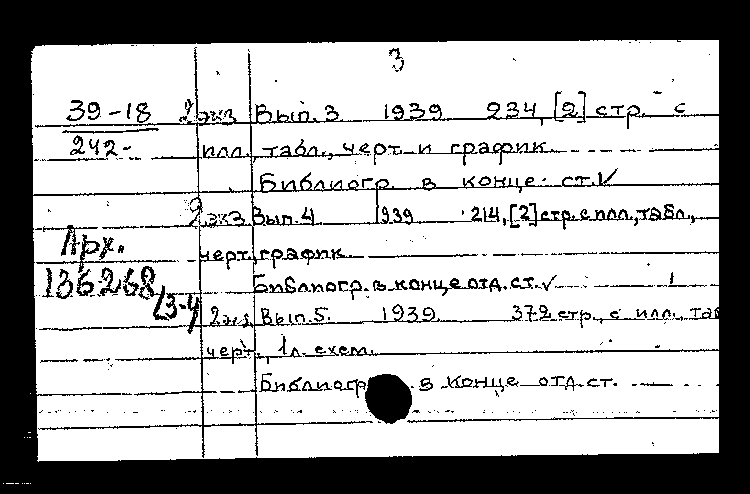 3
39-18 2экз Вып. 3 1939 234, [2] стр. с
242- илл., табл., черт. и график.
Библиогр. в конце ст. V
2экз Вып. 4 1939 214, [2] стр. с илл., табл.,
Арх. черт., график.
136268 Библиогр. в конце отд. ст. V 1
(3-4) 2экз Вып. 5. 1939 372 стр., с илл., таб
черт., 1 л. схем.
Библиогр. в конце отд. ст.